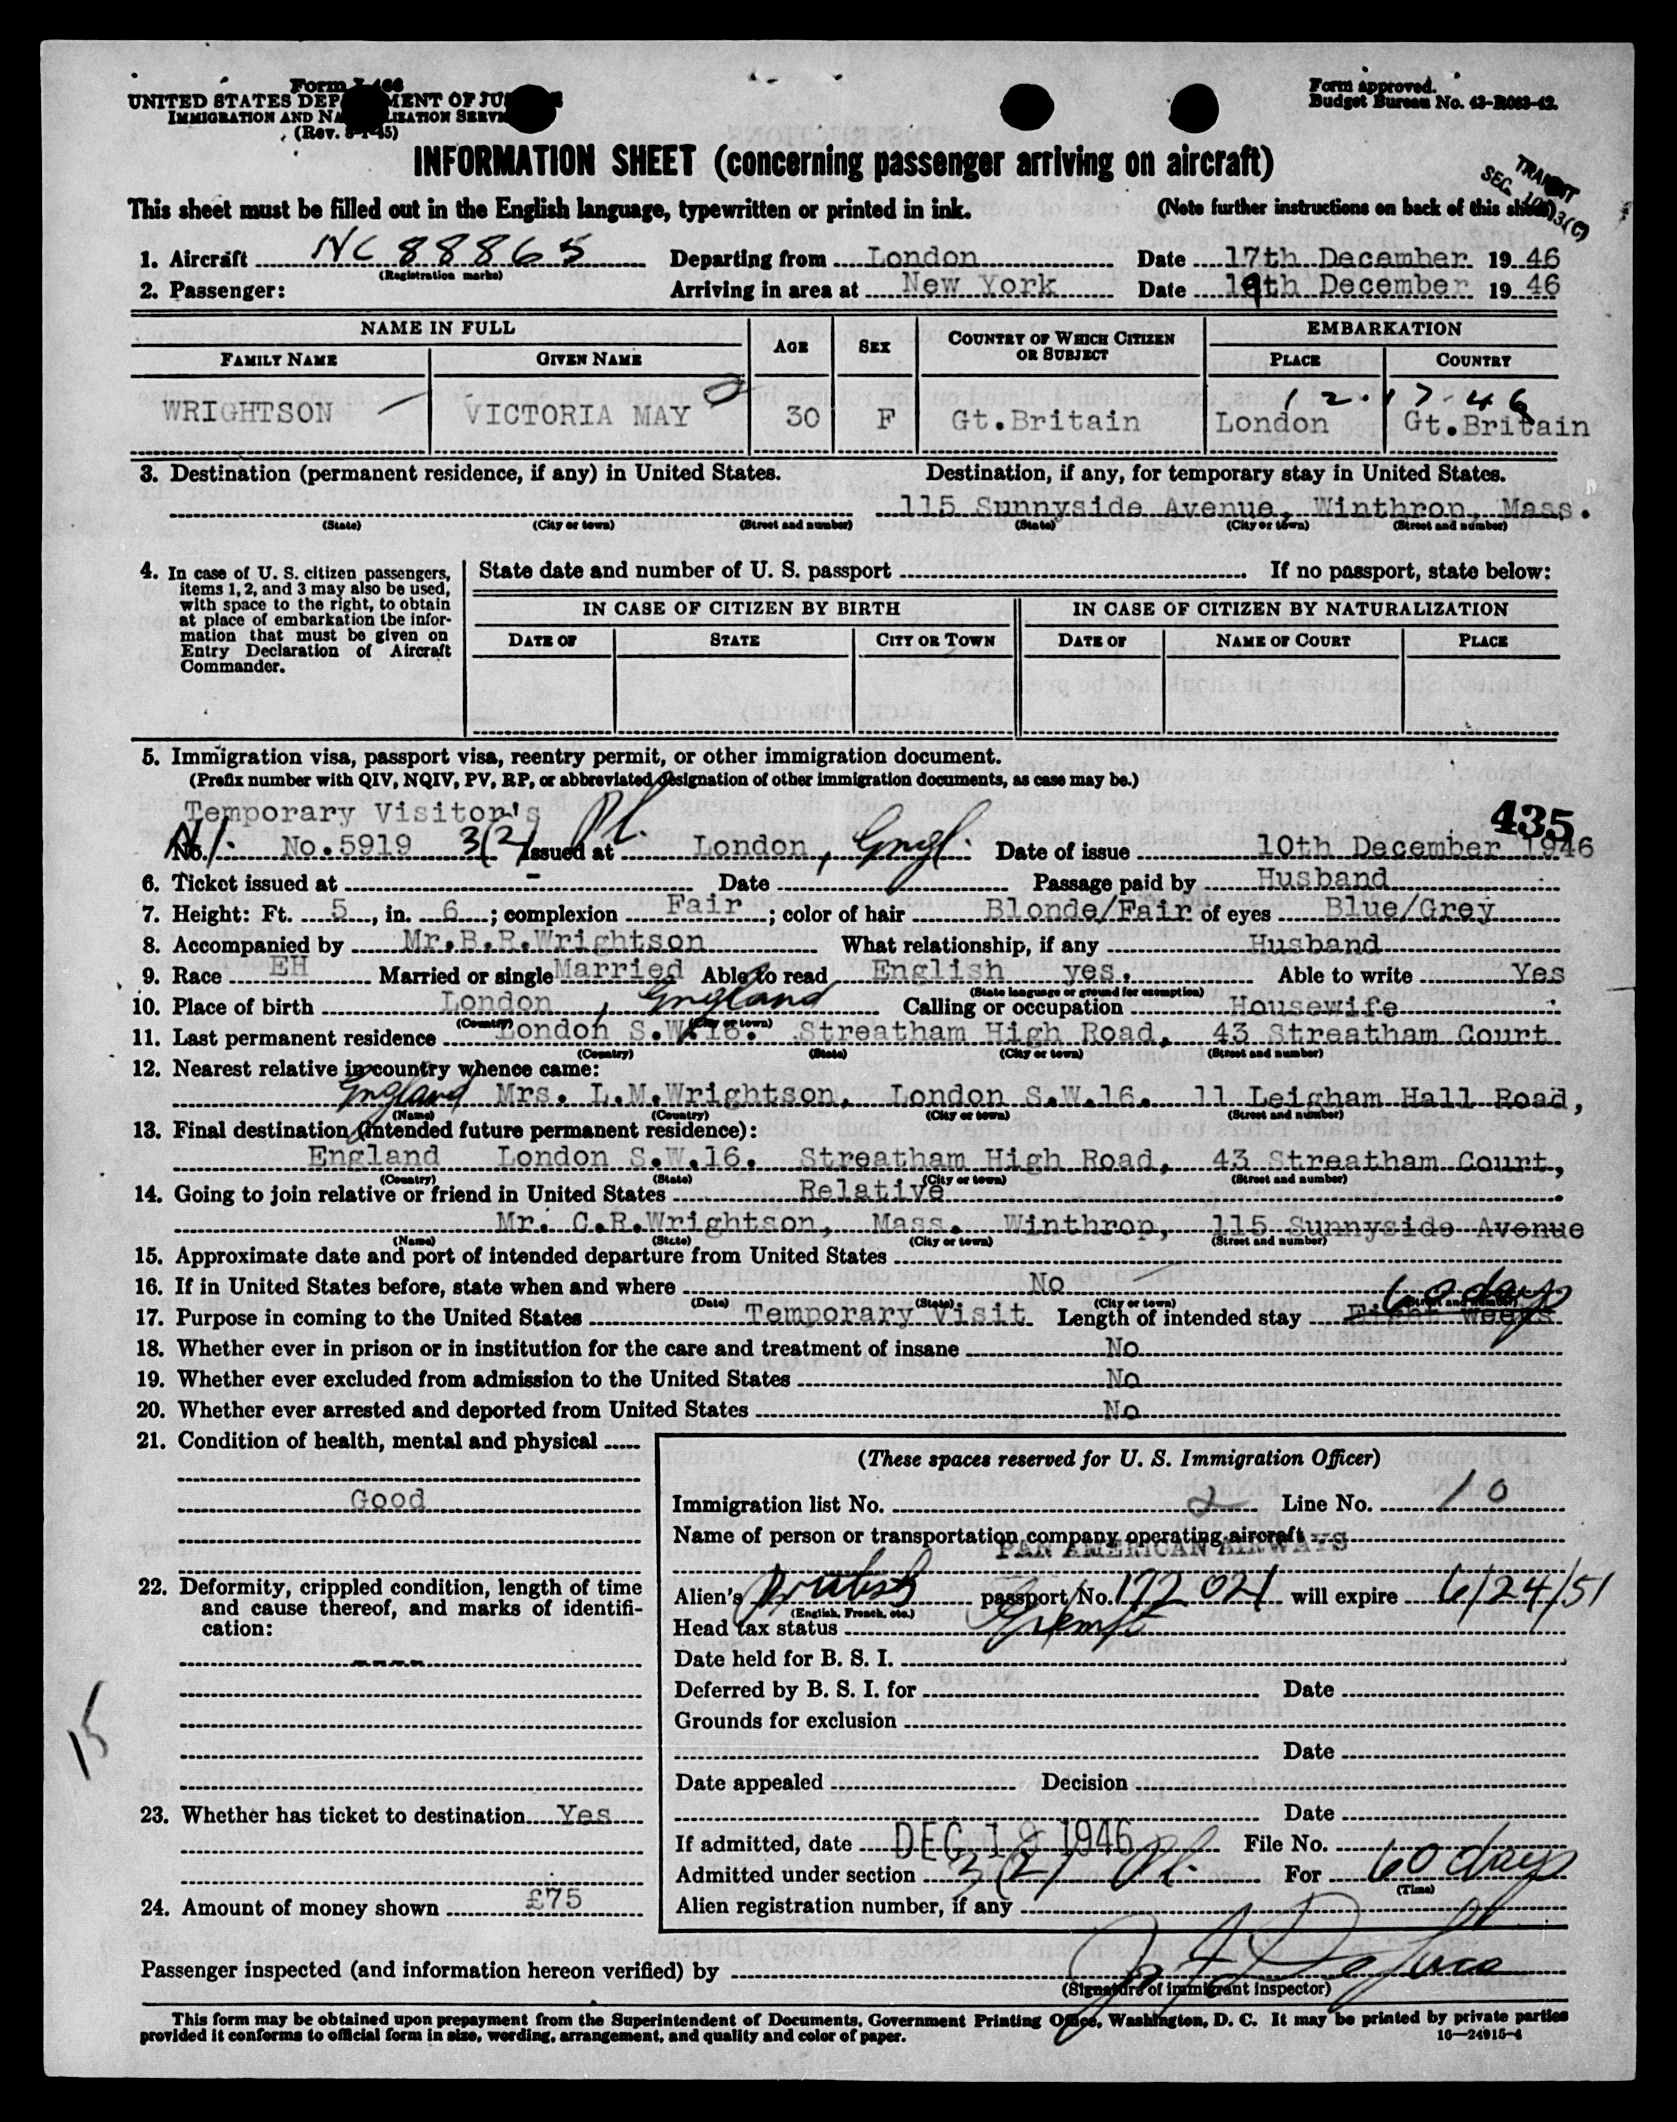 Form I-466
UNITED STATES DEPARTMENT OF JUSTICE
IMMIGRATION AND NATURALIZATION SERVICE
(Rev. 8-1-45)
Form approved.
Budget Bureau No. 43-R083-42.
INFORMATION SHEET (concerning passenger arriving on aircraft)
TRANSIT
SEC. 3(C)
This sheet must be filled out in the English language, typewritten or printed in ink. (Note further instructions on back of this sheet)
1. Aircraft NC 88865 Departing from London Date 17th December 19 46
(Registration marks)
2. Passenger: Arriving in area at New York Date 19th December 19 46
NAME IN FULL AGE SEX COUNTRY OF WHICH CITIZEN OR SUBJECT EMBARKATION
FAMILY NAME GIVEN NAME PLACE COUNTRY
12-17-46
WRIGHTSON VICTORIA MAY 30 F Gt.Britain London Gt.Britain
3. Destination (permanent residence, if any) in United States. Destination, if any, for temporary stay in United States.
115 Sunnyside Avenue, Winthrop, Mass.
(State) (City or town) (Street and number) (State) (City or town) (Street and number)
4. In case of U. S. citizen passengers, items 1, 2, and 3 may also be used, with space to the right, to obtain at place of embarkation the information that must be given on Entry Declaration of Aircraft Commander.
State date and number of U. S. passport If no passport, state below:
IN CASE OF CITIZEN BY BIRTH IN CASE OF CITIZEN BY NATURALIZATION
DATE OF STATE CITY OR TOWN DATE OF NAME OF COURT PLACE
5. Immigration visa, passport visa, reentry permit, or other immigration document.
(Prefix number with QIV, NQIV, PV, RP, or abbreviated designation of other immigration documents, as case may be.)
Temporary Visitor's 435
No. No.5919 3(2) Issued at London, Engl. Date of issue 10th December 1946
6. Ticket issued at - Date Passage paid by Husband
7. Height: Ft. 5, in. 6; complexion Fair; color of hair Blonde/Fair of eyes Blue/Grey
8. Accompanied by Mr.B.R.Wrightson What relationship, if any Husband
9. Race EH Married or single Married Able to read English yes. Able to write Yes
(State language or ground for exemption)
10. Place of birth London, England Calling or occupation Housewife
(Country) (City or town)
11. Last permanent residence London S.W.16. Streatham High Road, 43 Streatham Court
(Country) (State) (City or town) (Street and number)
12. Nearest relative in country whence came:
England Mrs. L.M.Wrightson, London S.W.16. 11 Leigham Hall Road,
(Name) (Country) (City or town) (Street and number)
13. Final destination (intended future permanent residence):
England London S.W.16. Streatham High Road, 43 Streatham Court,
(Country) (State) (City or town) (Street and number)
14. Going to join relative or friend in United States Relative
Mr. C.R.Wrightson, Mass. Winthrop, 115 Sunnyside Avenue
(Name) (State) (City or town) (Street and number)
15. Approximate date and port of intended departure from United States
16. If in United States before, state when and where No
(Date) (State) (City or town) (Street and number)
60 days
17. Purpose in coming to the United States Temporary Visit Length of intended stay Eight Weeks
18. Whether ever in prison or in institution for the care and treatment of insane No
19. Whether ever excluded from admission to the United States No
20. Whether ever arrested and deported from United States No
21. Condition of health, mental and physical
Good
22. Deformity, crippled condition, length of time and cause thereof, and marks of identification:
----
23. Whether has ticket to destination Yes
24. Amount of money shown £75
15
(These spaces reserved for U. S. Immigration Officer)
Immigration list No. 2 Line No. 10
Name of person or transportation company operating aircraft
PAN AMERICAN AIRWAYS
Alien's British passport No. 172021 will expire 6/24/51
(English, French, etc.)
Head tax status Exempt
Date held for B. S. I.
Deferred by B. S. I. for Date
Grounds for exclusion
Date
Date appealed Decision
Date
If admitted, date DEC 19 1946 File No.
Admitted under section 3(2) For 60 days
(Time)
Alien registration number, if any
Passenger inspected (and information hereon verified) by
(Signature of immigrant inspector)
This form may be obtained upon prepayment from the Superintendent of Documents, Government Printing Office, Washington, D. C. It may be printed by private parties
provided it conforms to official form in size, wording, arrangement, and quality and color of paper. 16—24915-4